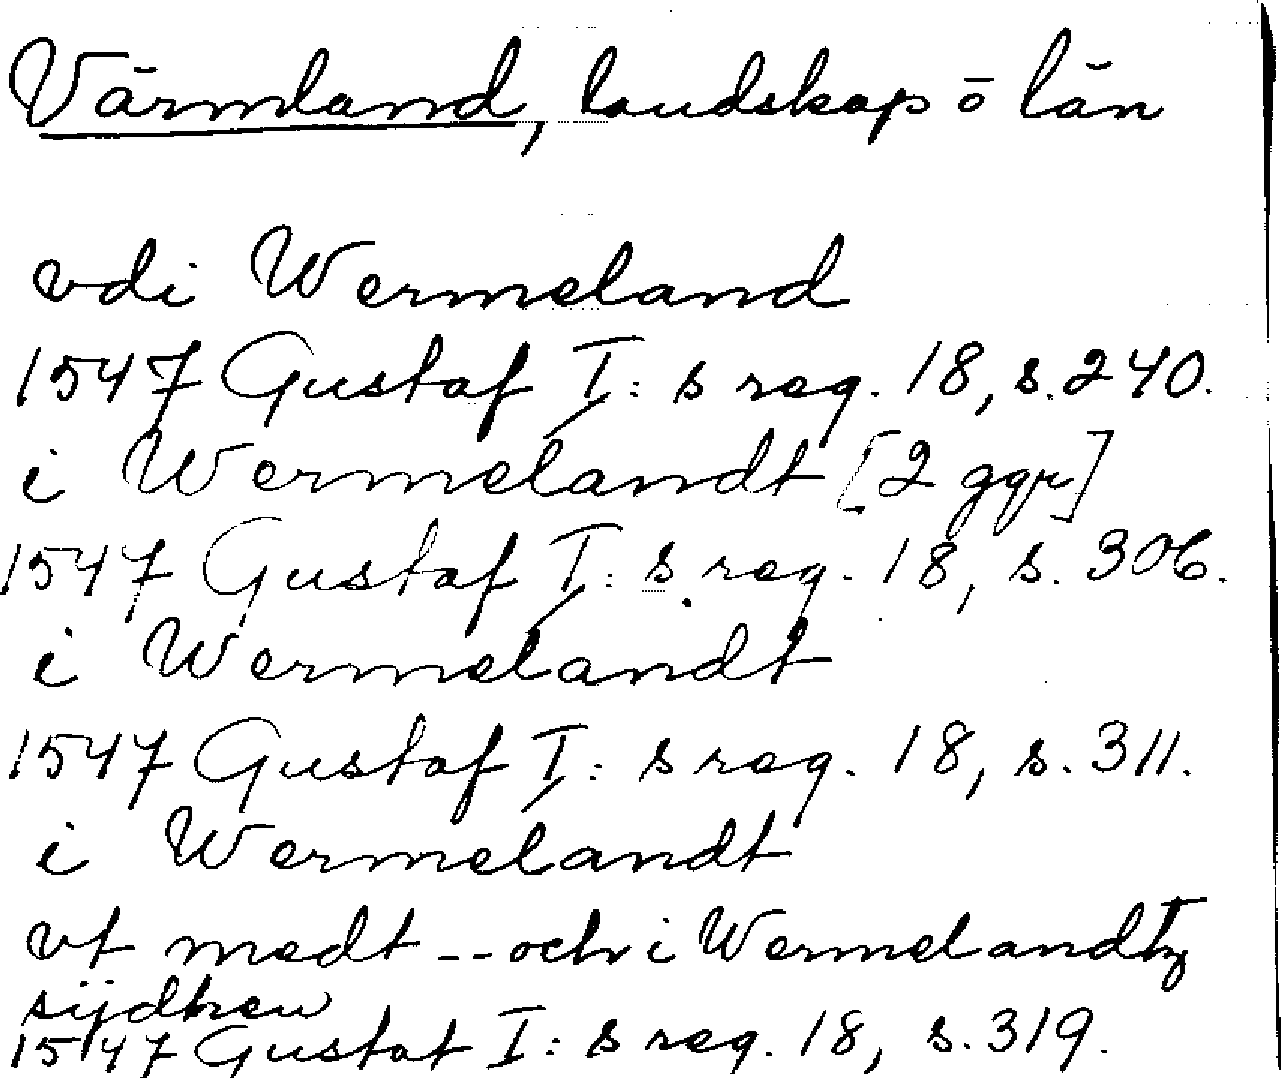 Värmland, landskap ō län
vdi Wermeland
1547 Gustaf I: s reg. 18, s. 240.
i Wermelandt [2 ggr]
1547 Gustaf I: s reg. 18, s. 306.
i Wermelandt
1547 Gustaf I: s reg. 18, s. 311.
i Wermelandt
vt medt -- och i Wermelandtz
sijdhen
1547 Gustaf I: s reg. 18, s. 319.